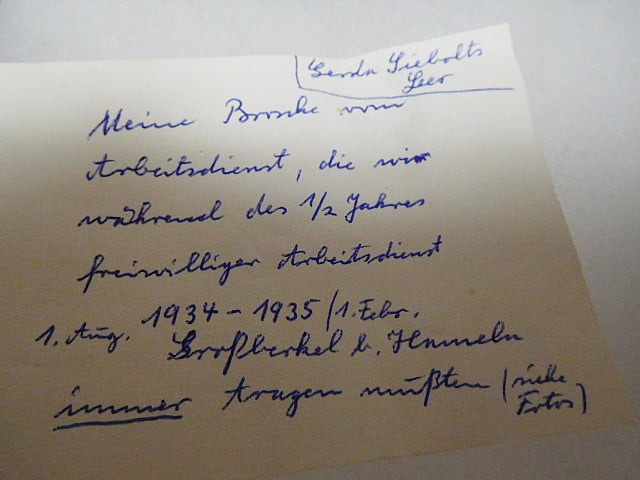 Gerda Siebolts
Leer
Meine Brosche vom
Arbeitsdienst, die wir
während des 1/2 Jahres
freiwilliger Arbeitsdienst
1. Aug. 1934 - 1935 / 1. Febr.
Großberkel b. Hameln
immer tragen mußten (siehe
Fotos)